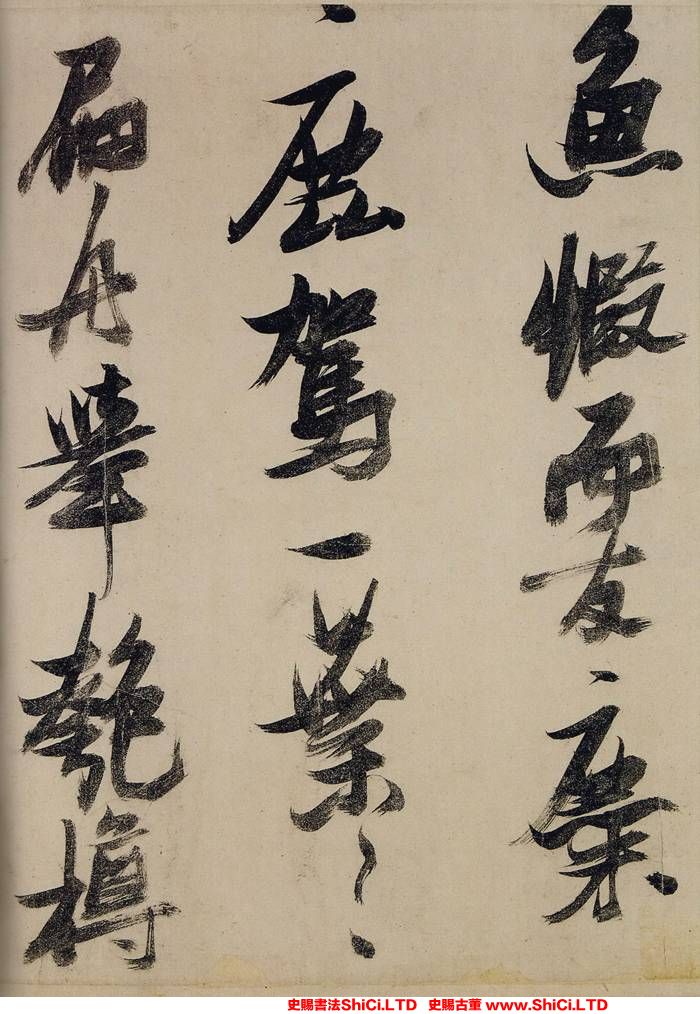 魚蝦而友麋
鹿駕一葉之
扁舟舉匏樽
史賜書法ShiCi.LTD 史賜古董 www.ShiCi.LTD